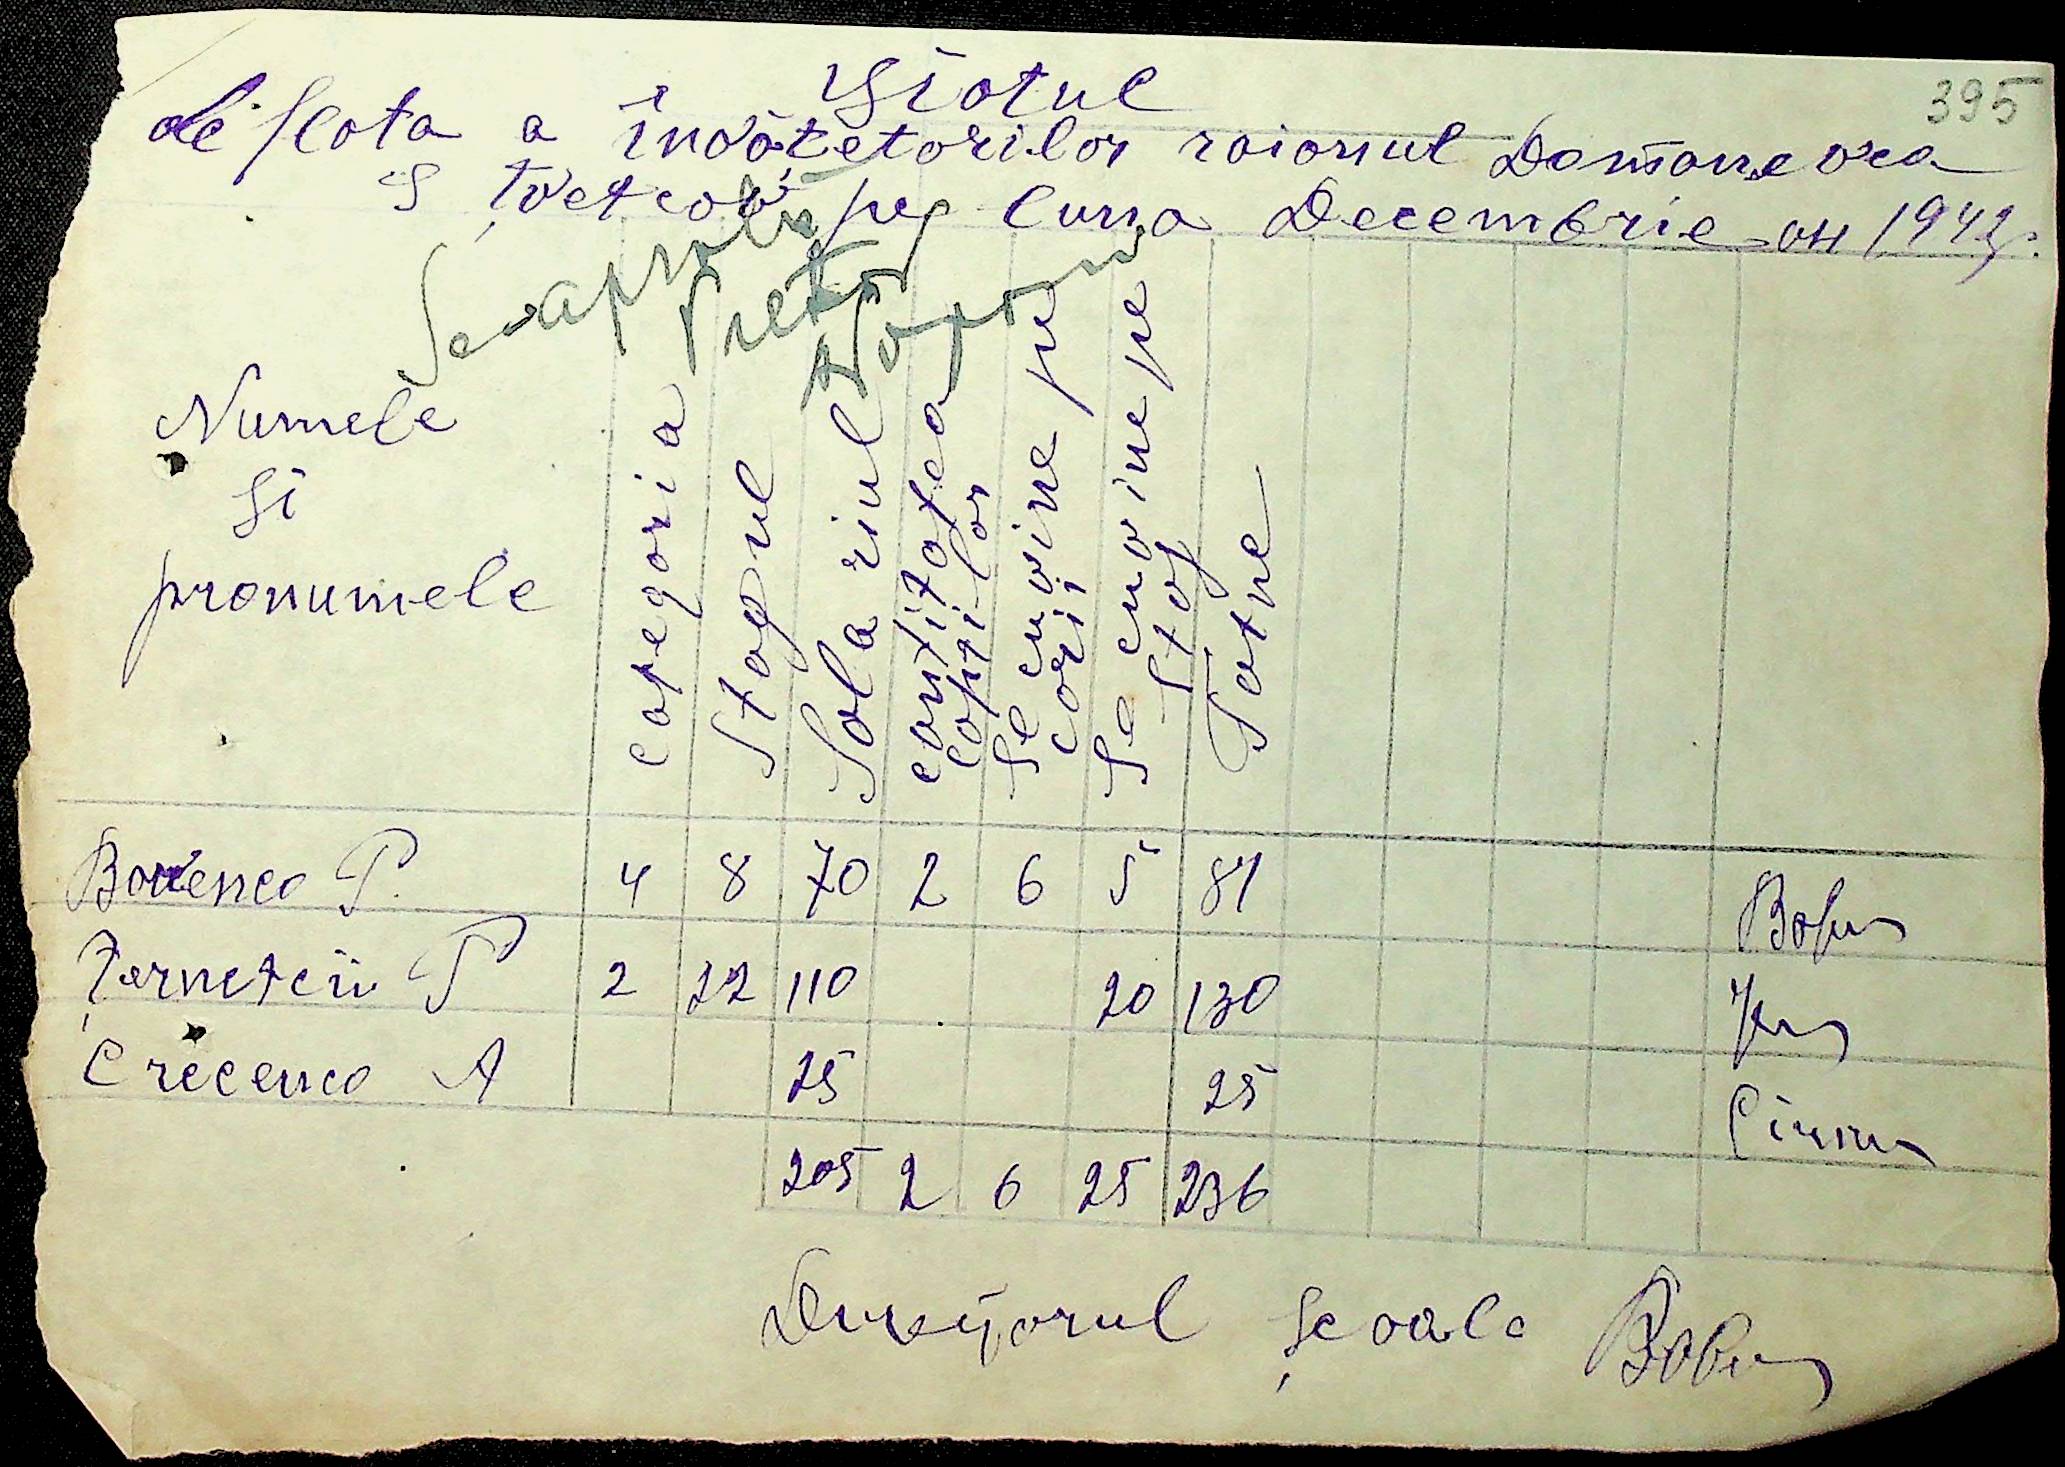 395
Ştotul
de plota a învățetorilor raionul Domanevca
s Țvetcov pe luna Decembrie an 1942
Se aprobă
Pretor
Numele
şi
pronumele
categoria
Stogiul
Solariul
contitotea
copiilor
Se cuvine pe
copii
Se cuvine pe
Stoj
Totne
Bovenco P. 4 8 70 2 6 5 81
Țernetcii P 2 22 110 20 130
Crecenco A 25 25
205 2 6 25 236
Direcțorul şcoale